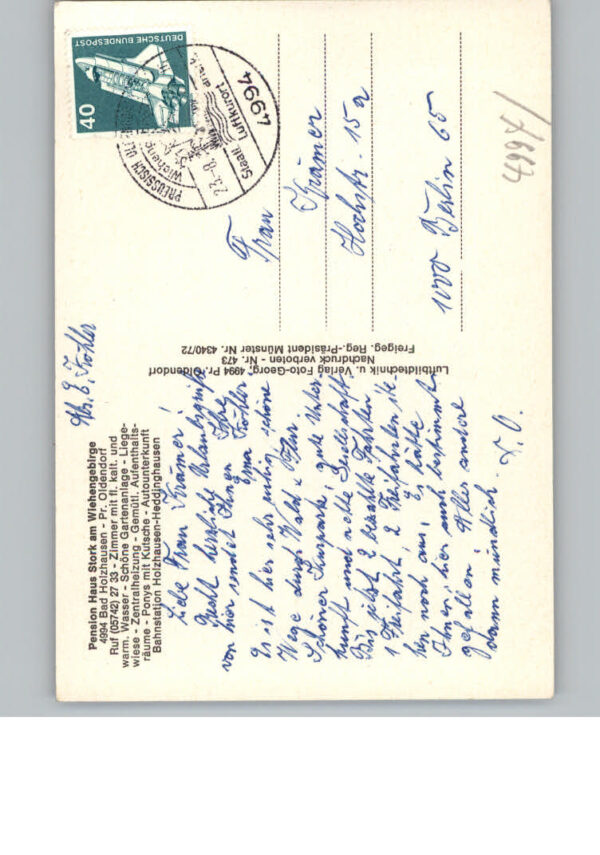 Pension Haus Stork am Wiehengebirge
4994 Bad Holzhausen - Pr. Oldendorf
Ruf (05742) 27 33 - Zimmer mit fl. kalt. und
warm. Wasser - Schöne Gartenanlage - Liege-
wiese - Zentralheizung - Gemütl. Aufenthalts-
räume - Ponys mit Kutsche - Autounterkunft
Bahnstation Holzhausen-Heddinghausen
Abs. E. Fröhler
Liebe Frau Krämer!
Recht herzliche Urlaubsgrüße
von hier sendet Ihnen Ihre
Erna Fröhler
Es ist hier sehr ruhig, schöne
Wege durch Wald u. Flur.
Schöner Kurpark, gute Unter-
kunft und nette Gesellschaft.
Bis jetzt 2 bezahlte Fahrten
1 Freifahrt, 2 Freifahrten ste-
hen noch aus. Es hätte
Ihnen hier auch bestimmt
gefallen. Alles andere
dann mündlich. D. O.
Luftbildtechnik u. Verlag Foto-Georg, 4994 Pr. Oldendorf
Nachdruck verboten - Nr. 473
Freigeg. Reg.-Präsident Münster Nr. 4340/72
DEUTSCHE BUNDESPOST
40
4994
PREUSSISCH OL
Wiehenge
Staatl
Luftkurort
23.-8.
Frau
Krämer
Hochstr. 15a
1000 Berlin 65
4994/